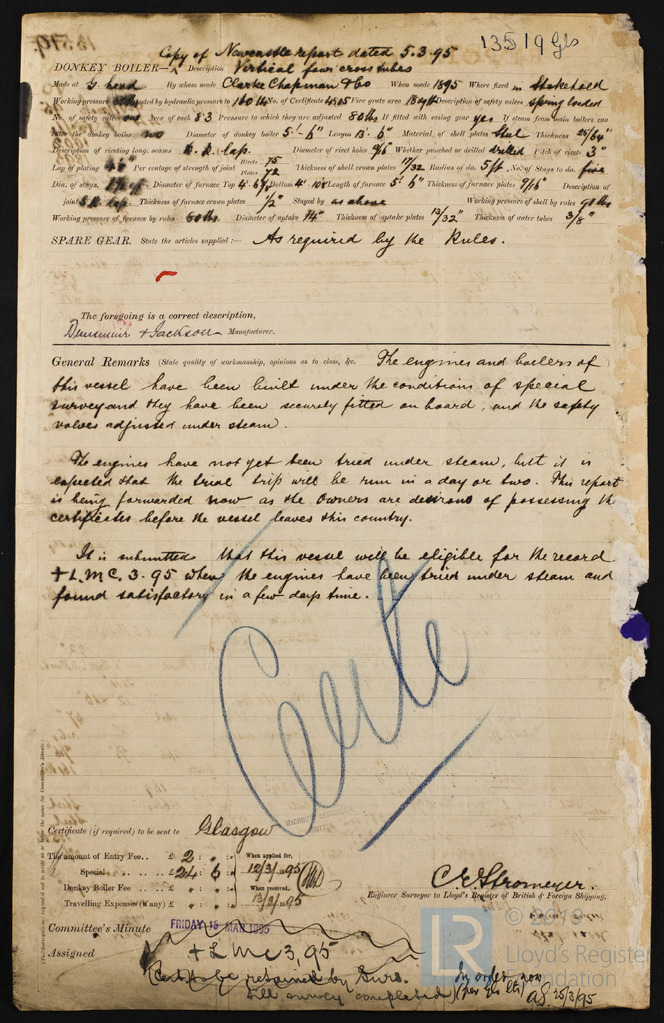 Copy of Newcastle report dated 5.3.95
13519 Gls
DONKEY BOILER— Description Vertical four cross tubes
Made at G. head By whom made Clarke Chapman & Co When made 1895 Where fixed in Stokehold
Working pressure tested by hydraulic pressure to 160 No. of Certificate 4505 Fire grate area Description of safety valves spring loaded
No. of safety valves Area of each 8.3 Pressure to which they are adjusted 80 lbs If fitted with easing gear yes If steam from main boilers can
enter the donkey boiler no Diameter of donkey boiler 5'-6" Length 13'-6" Material of shell plates Steel Thickness 25/64"
Description of riveting long. seams D.R. Lap. Diameter of rivet holes Whether punched or drilled drilled Pitch of rivets 3"
Lap of plating Per centage of strength of joint Rivets 75 Plates 72 Thickness of shell crown plates 17/32 Radius of do. 5 ft No. of Stays to do. five
Dia. of stays. Diameter of furnace Top Bottom Length of furnace Thickness of furnace plates 9/16" Description of
joint S.R. Lap Thickness of furnace crown plates 1/2" Stayed by as above Working pressure of shell by rules 90 lbs
Working pressure of furnace by rules Diameter of uptake 14" Thickness of uptake plates 13/32" Thickness of water tubes 3/8"
SPARE GEAR. State the articles supplied:— As required by the Rules.
The foregoing is a correct description,
Dunsmuir & Jackson Manufacturer.
General Remarks (State quality of workmanship, opinions as to class, &c. The engines and boilers of
this vessel have been built under the conditions of special
survey and they have been securely fitted on board, and the safety
valves adjusted under steam.
The engines have not yet been tried under steam, but it is
expected that the trial trip will be run in a day or two. This report
is being forwarded now as the Owners are desirous of possessing the
certificates before the vessel leaves this country.
It is submitted that this vessel will be eligible for the record
+ L.M.C. 3.95 when the engines have been tried under steam and
found satisfactory in a few days time.
Certe
Certificate (if required) to be sent to Glasgow
The amount of Entry Fee.. £ 2 : " : " When applied for,
Special £ 24 : 6 : " 12/3/95
Donkey Boiler Fee £ : : When received,
Travelling Expenses (if any) £ : : 13/3/95
C. E. Stromeyer.
Engineer Surveyor to Lloyd's Register of British & Foreign Shipping.
Committee's Minute FRIDAY 15 MAR 1895
Assigned + LMC 3,95
Cert to be retained by Surs.
till survey completed
In order now
(per Gls ltr) 25/3/95
© 2019
LR
Lloyd's Register
Foundation